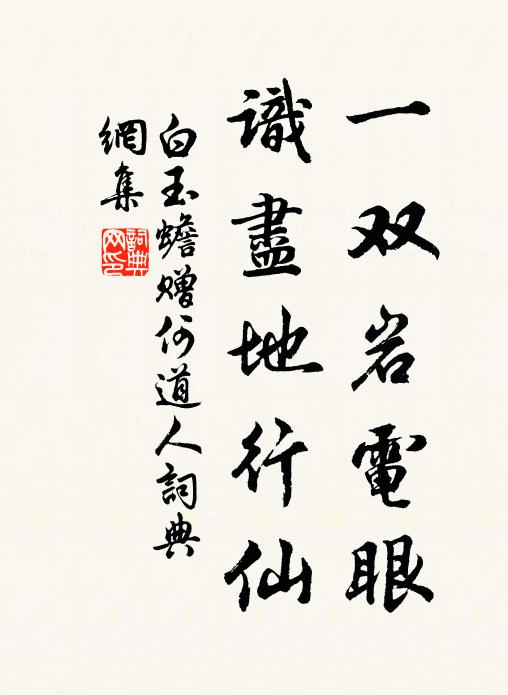 一双岩電眼
識盡地行仙
白玉蟾赠何道人詞典
網集
詞典
网印